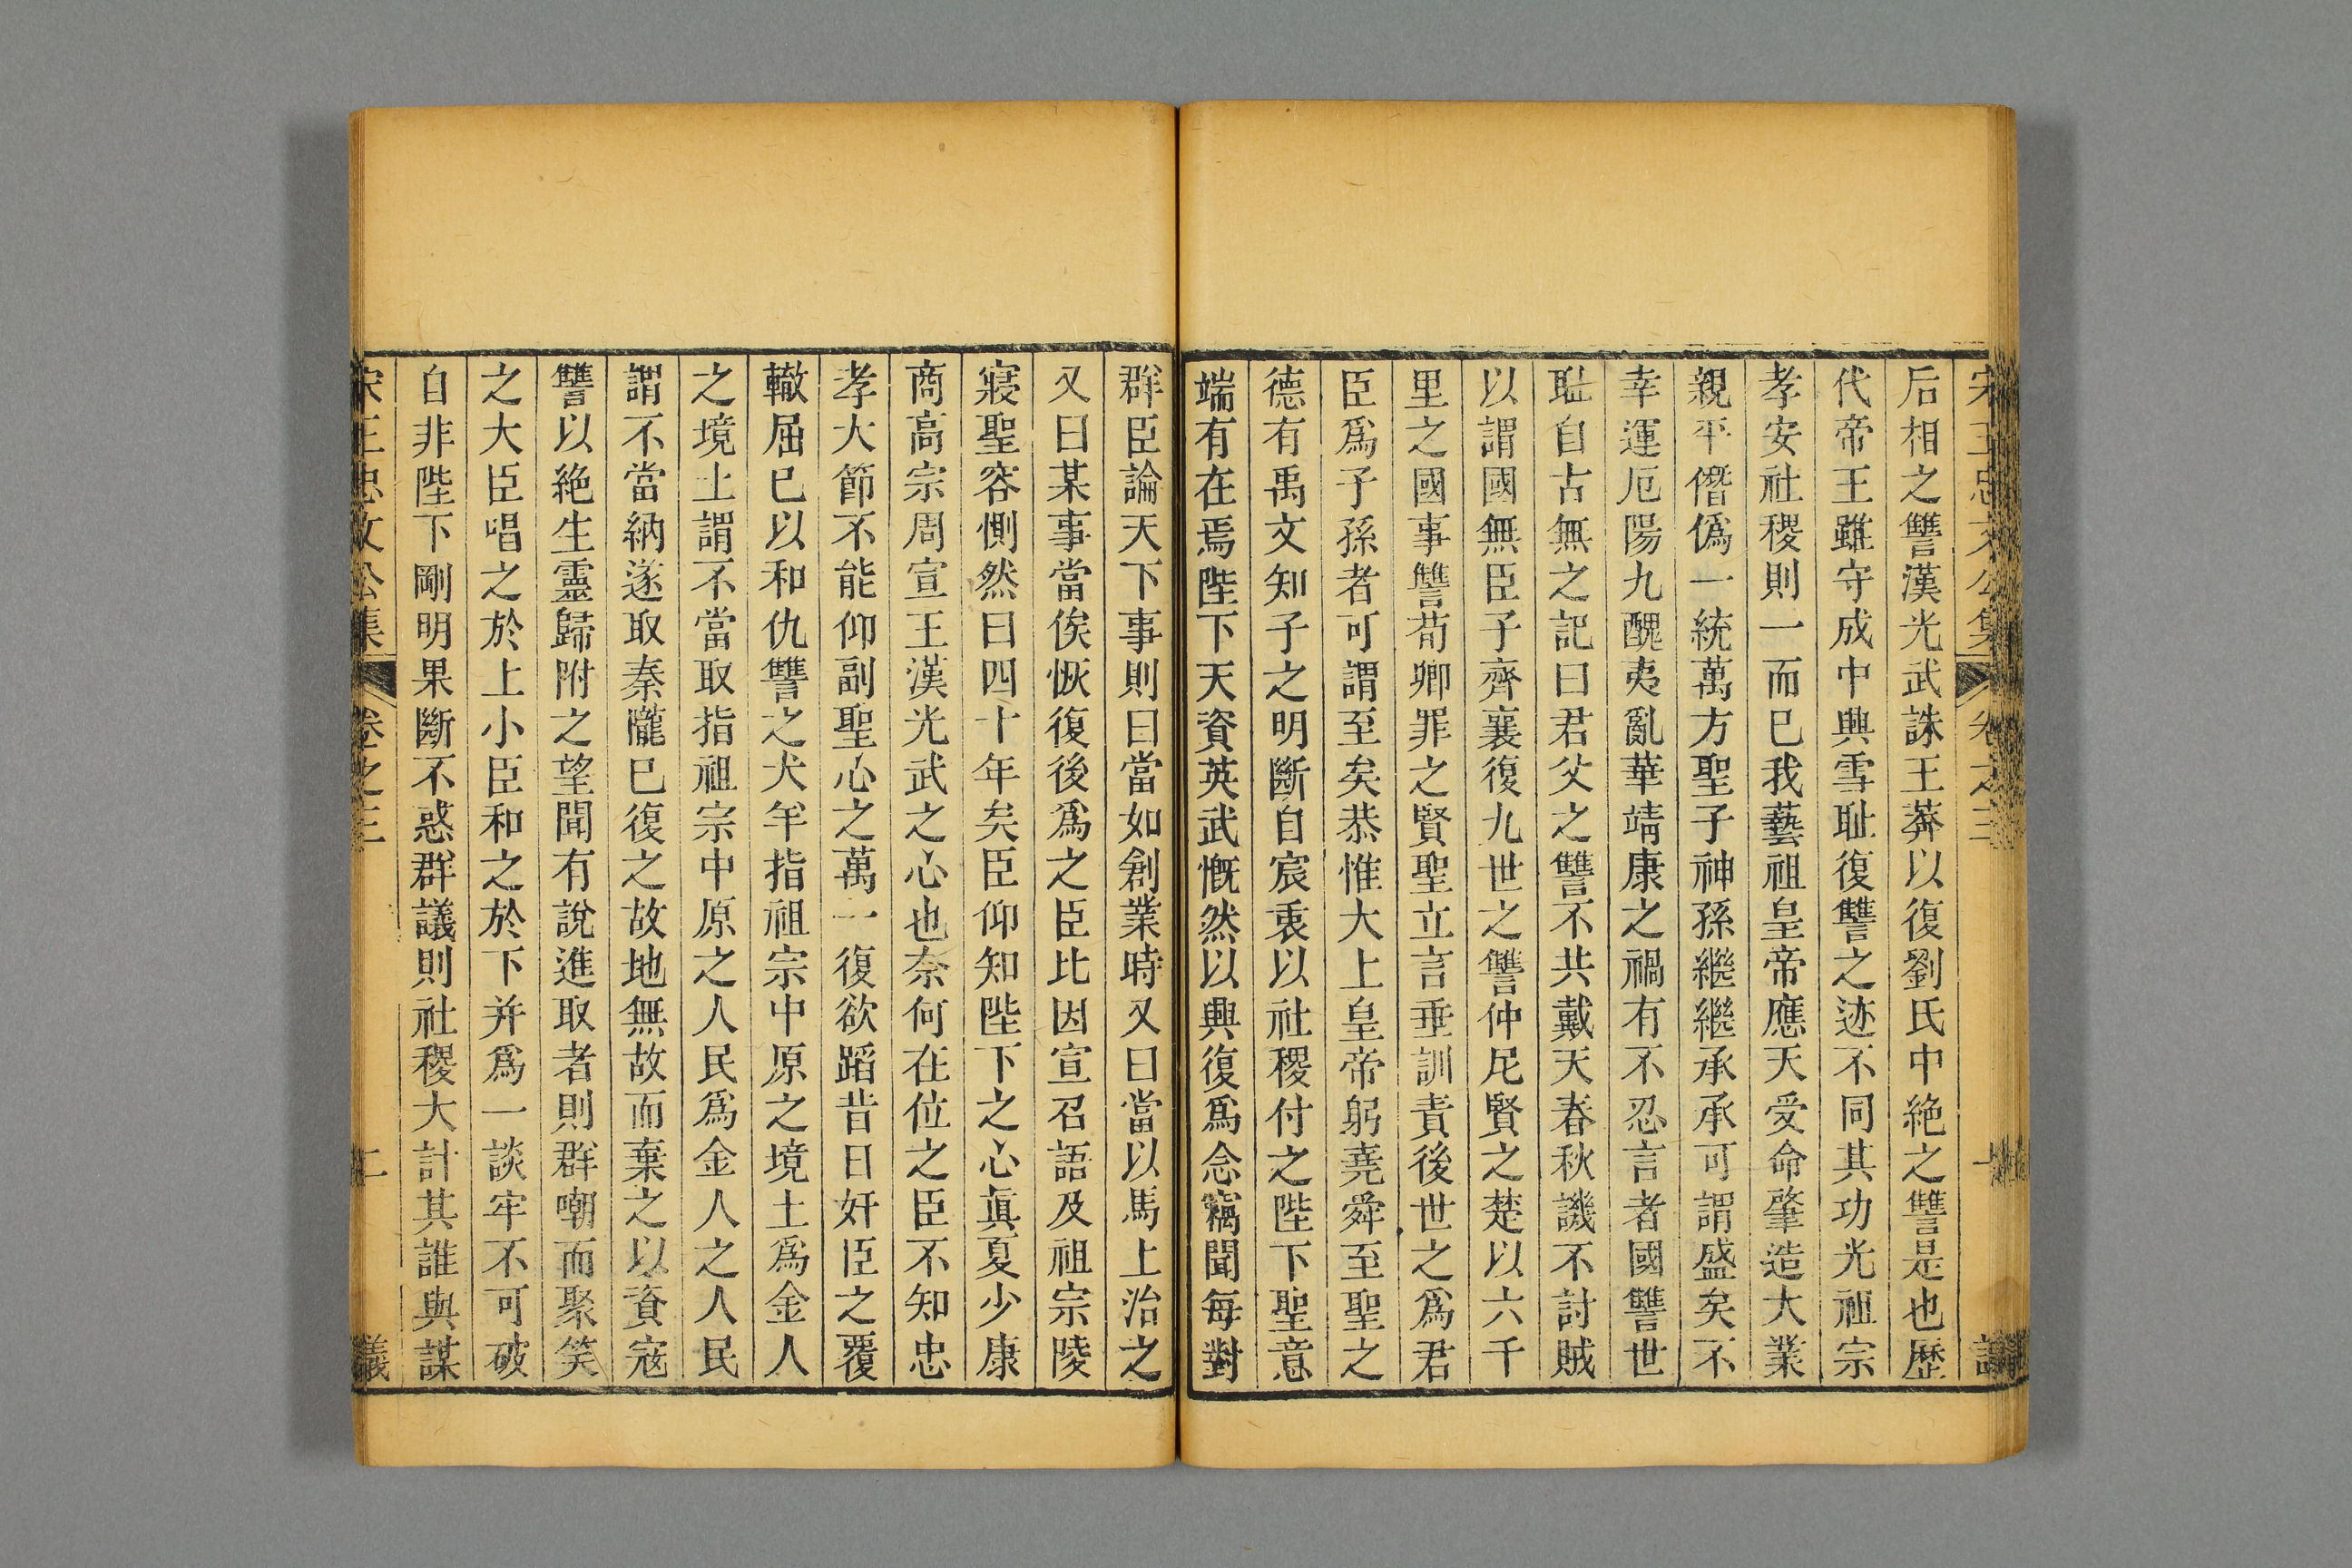 宋王忠文公集 卷之三
后相之讐漢光武誅王莽以復劉氏中絶之讐是也歷
代帝王雖守成中興雪耻復讐之迹不同其功光祖宗
孝安社稷則一而已我藝祖皇帝應天受命肇造大業
親平僭僞一統萬方聖子神孫繼繼承承可謂盛矣不
幸運厄陽九醜夷亂華靖康之禍有不忍言者國讐世
耻自古無之記曰君父之讐不共戴天春秋譏不討賊
以謂國無臣子齊襄復九世之讐仲尼賢之楚以六千
里之國事讐荀卿罪之賢聖立言垂訓責後世之爲君
臣爲子孫者可謂至矣恭惟大上皇帝躬堯舜至聖之
德有禹文知子之明斷自宸衷以社稷付之陛下聖意
端有在焉陛下天資英武慨然以興復爲念竊聞每對
群臣論天下事則曰當如創業時又曰當以馬上治之
又曰某事當俟恢復後爲之臣比因宣召語及祖宗陵
寢聖容惻然曰四十年矣臣仰知陛下之心眞夏少康
商高宗周宣王漢光武之心也奈何在位之臣不知忠
孝大節不能仰副聖心之萬一復欲蹈昔日奸臣之覆
轍屈已以和仇讐之犬羊指祖宗中原之境土爲金人
之境土謂不當取指祖宗中原之人民爲金人之人民
謂不當納遂取秦隴已復之故地無故而棄之以資寇
讐以絶生靈歸附之望聞有說進取者則群嘲而聚笑
之大臣唱之於上小臣和之於下并爲一談牢不可破
自非陛下剛明果斷不惑群議則社稷大計其誰與謀
宋王忠文公集 卷之三 二 議